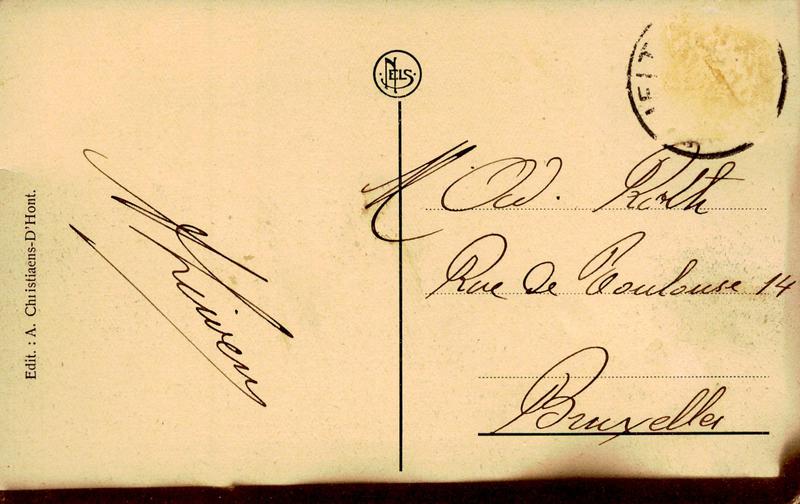 Edit. : A. Christiaens-D'Hont.
NELS
M Od. Roth
Rue de Toulouse 14
Bruxelles